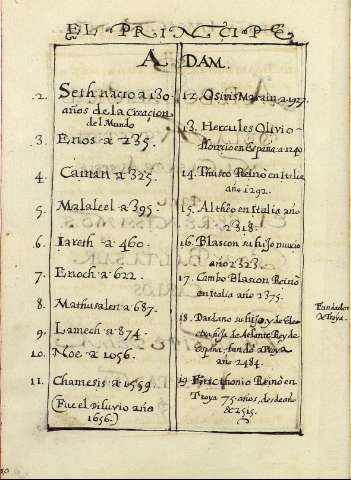 EL PRINÇIPE
ADAM.
2. Seth nacio a 130.
años de la Creaçion
del Mundo
3. Enos a 235.
4. Cainan a 325.
5. Malaleel a 395.
6. Iareth a 460.
7. Enoch a 622.
8. Mathusalen a 687.
9. Lamech a 874.
10. Noe a 1056.
11. Chamesis a 1559
(Fue el Diluvio año
1656.)
12. Osiris a 1927.
13. Hercules
floreçio en España a 1240
14. Reino en Italia
año 1292.
15. Altheo en Italia año
2318.
16. Blascon su hijo murio
año 2323.
17. Cambo Blascon Reino
en Italia año 2375.
18. Dardano su hijo y de
hija de Atlante Rey de
España, fundo a Troya
año 2484.
19. Ericthonio Reino en
Troya 75 años, desde año
2515.
Fundador
de Troya.